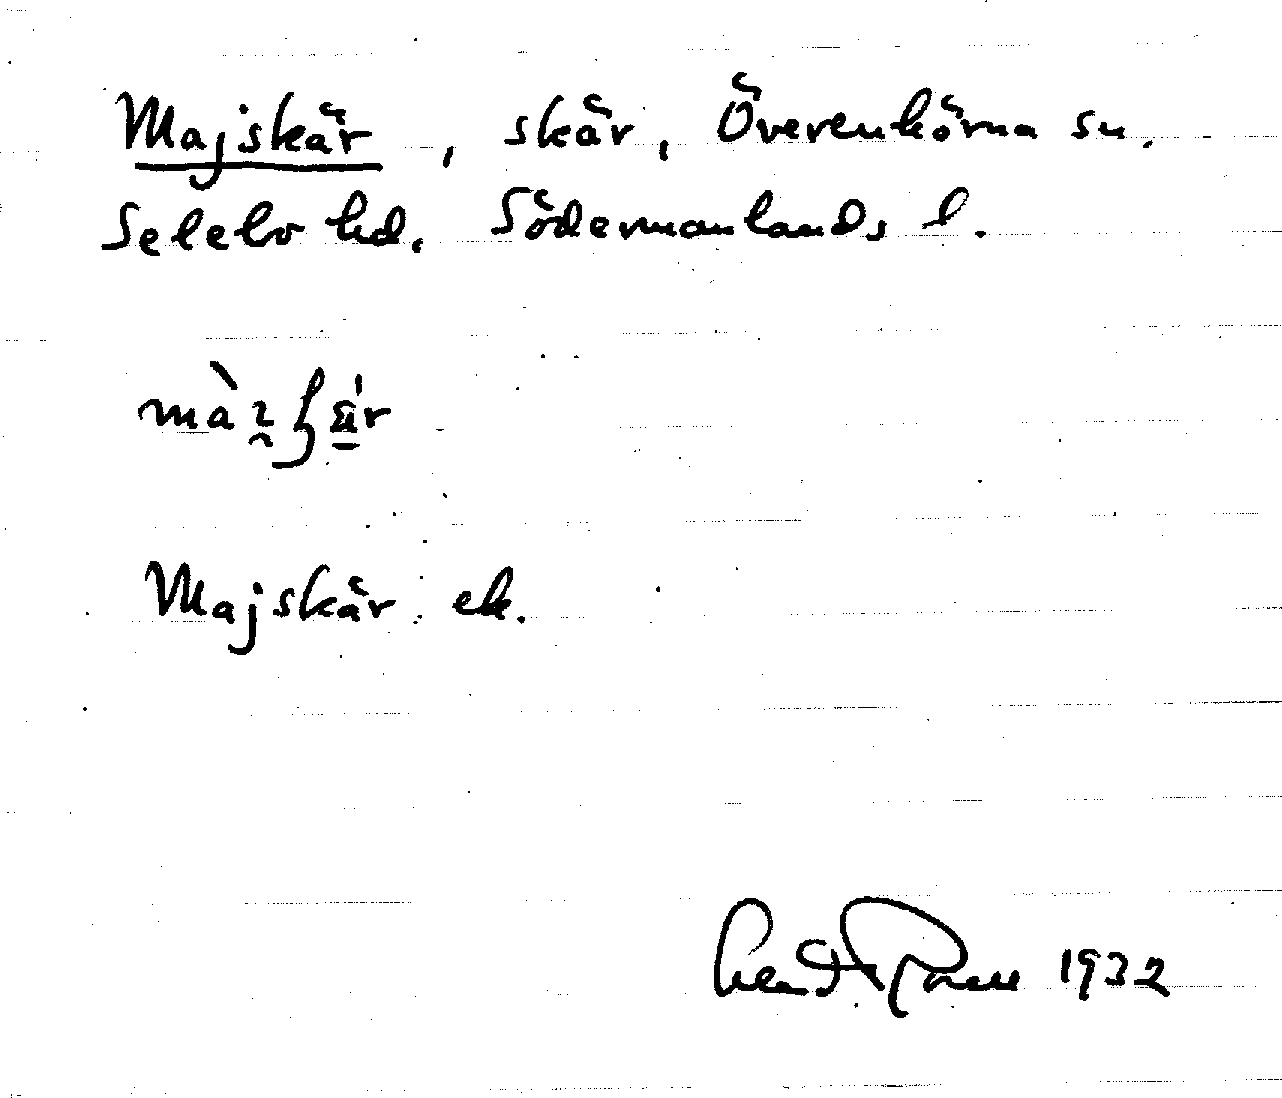 Majskär, skär, Överenhörna sn.
Selebo hd. Södermanlands l.
Majskär ek.
1932